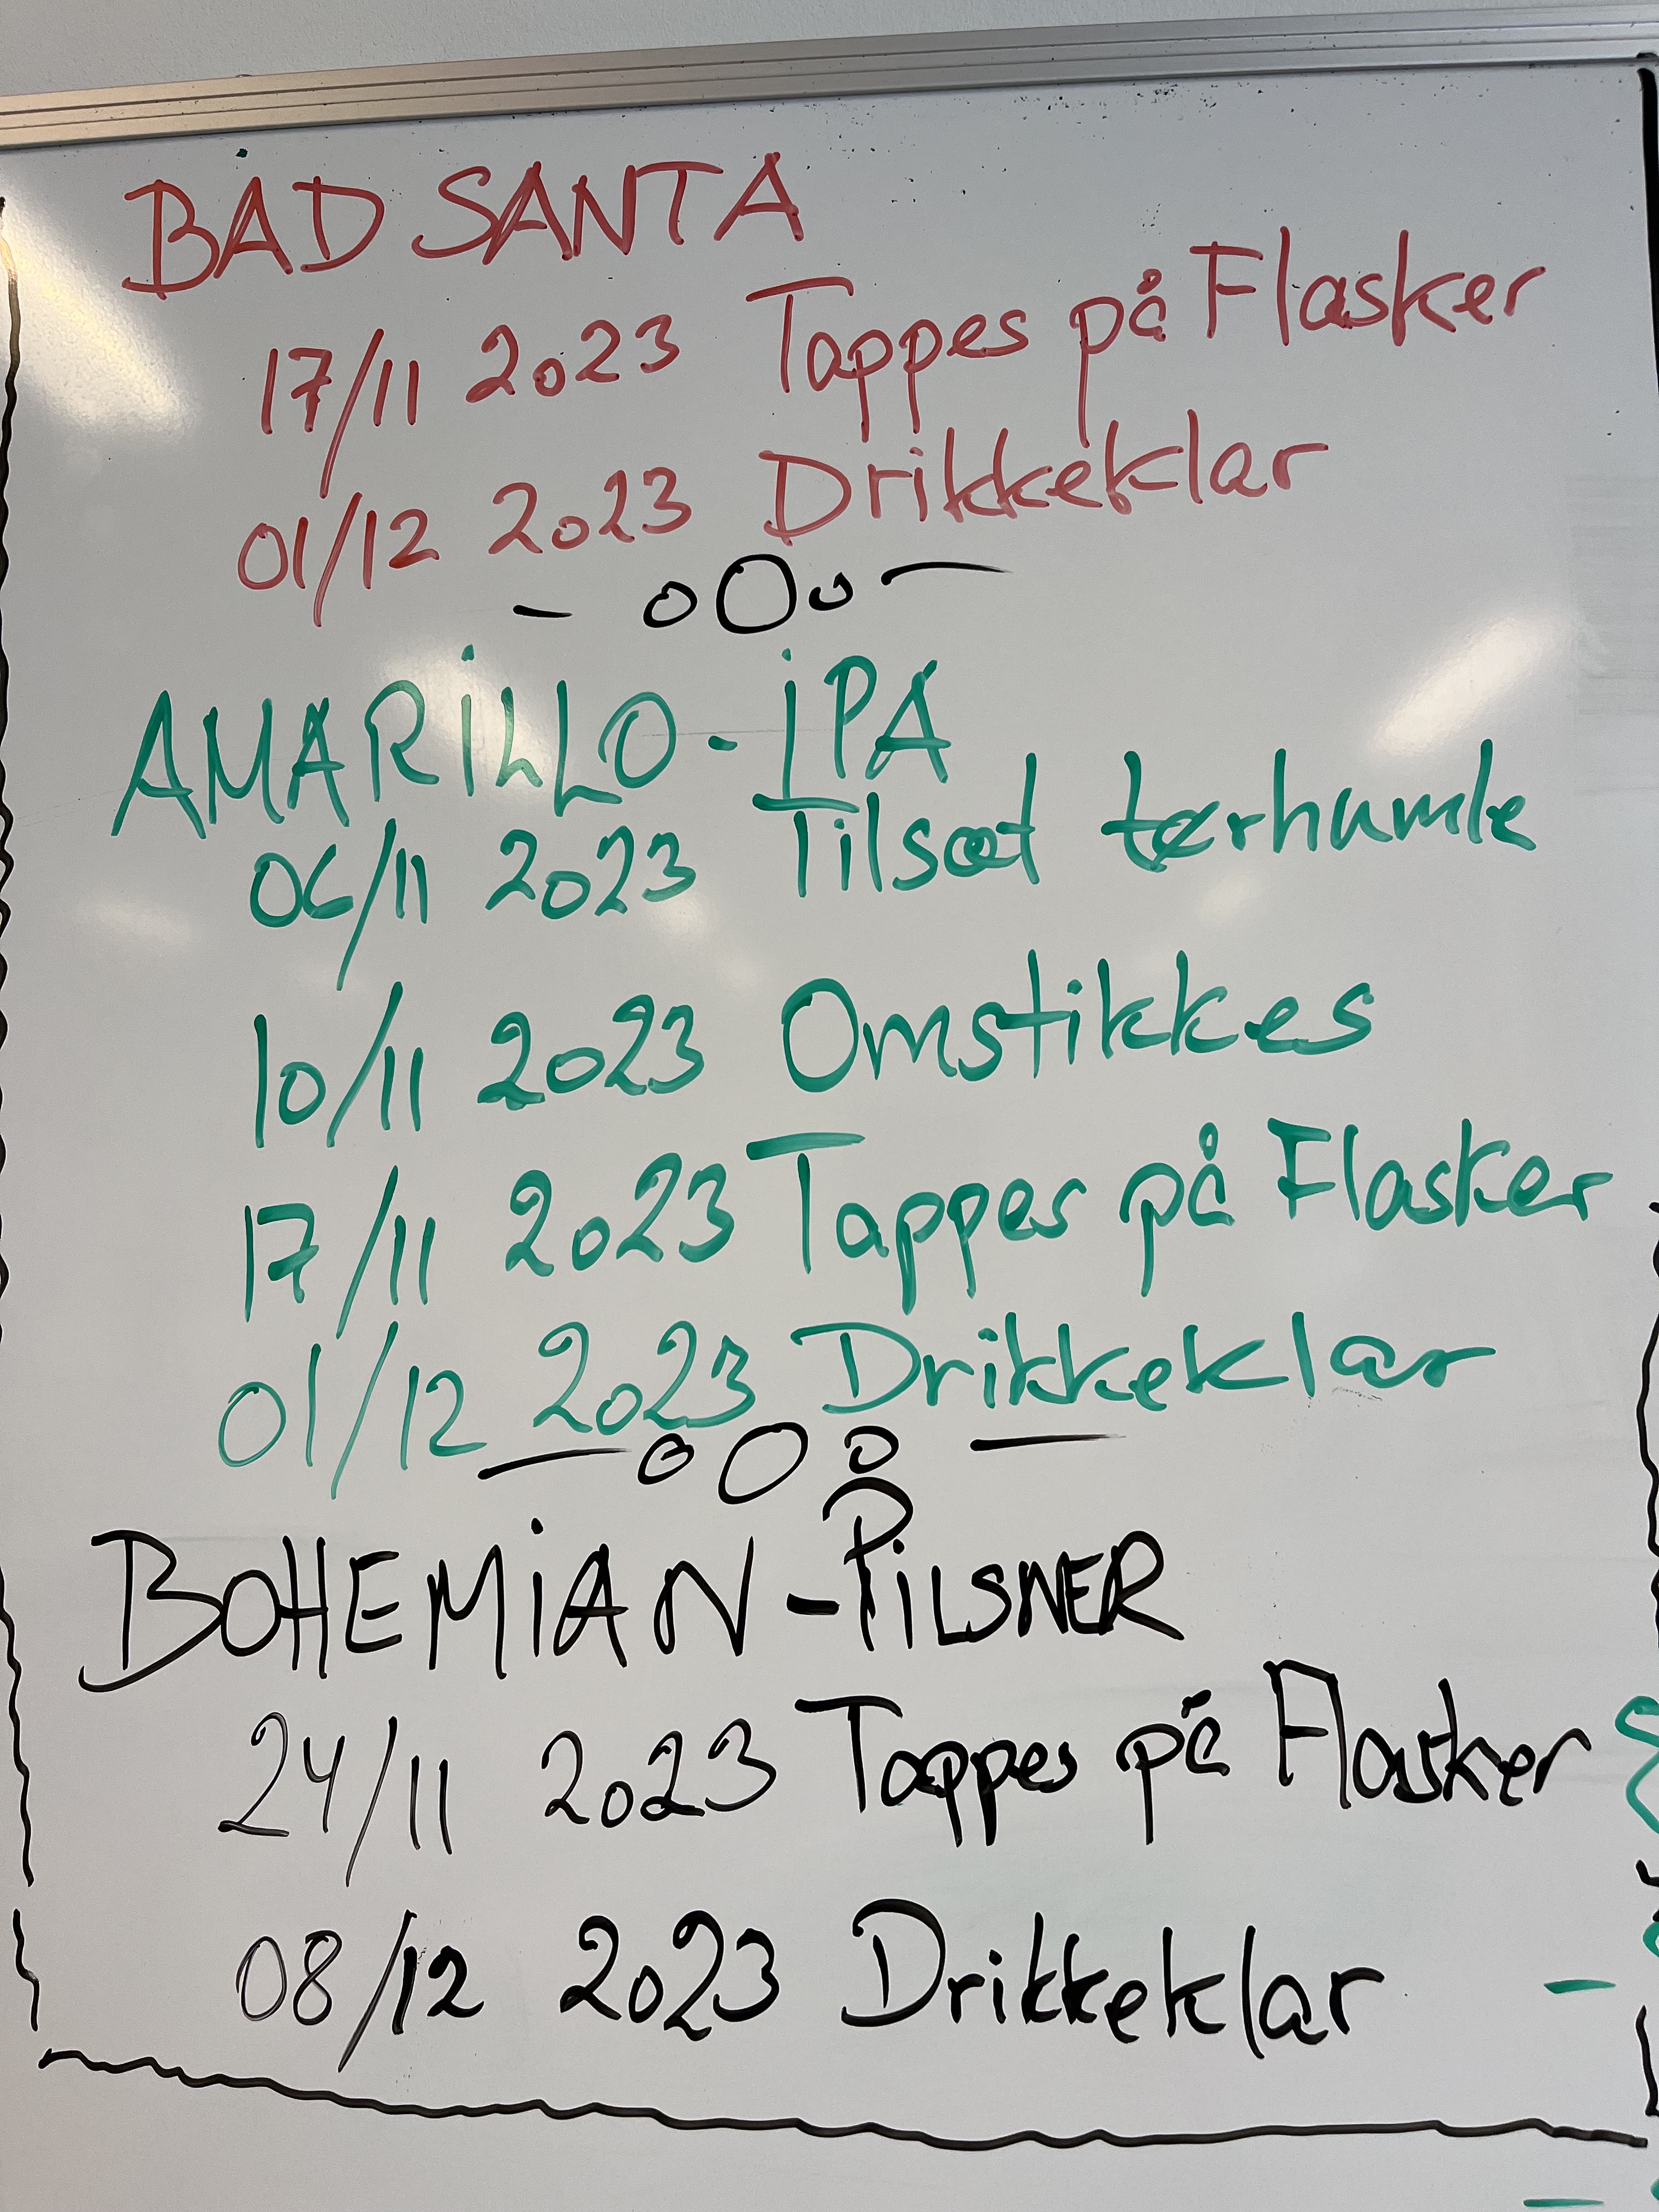 BAD SANTA
17/11 2023 Tappes på Flasker
01/12 2023 Drikkeklar
- oOo -
AMARiLLO-IPA
06/11 2023 Tilsæt tørhumle
10/11 2023 Omstikkes
17/11 2023 Tappes på Flasker
01/12 2023 Drikkeklar
- oOo -
BOHEMiAN-PiLSNER
24/11 2023 Tappes på Flasker
08/12 2023 Drikkeklar